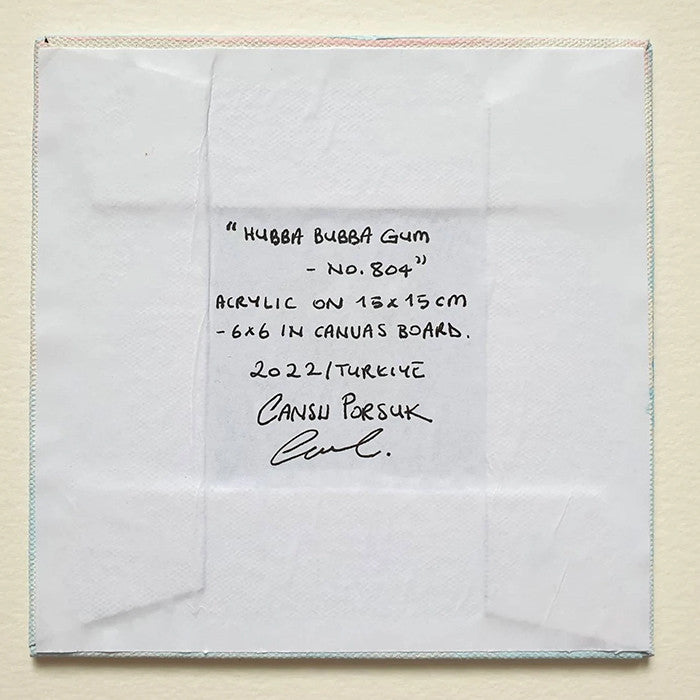 "HUBBA BUBBA GUM
- NO. 804"
ACRYLIC ON 15x15 CM
- 6x6 IN CANVAS BOARD.
2022/TURKIYE
CANSU PORSUK